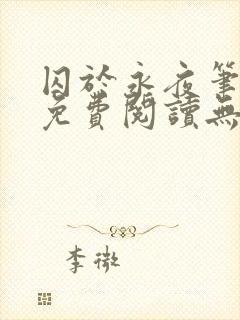 囚於永夜筆
免費閱讀無
李微